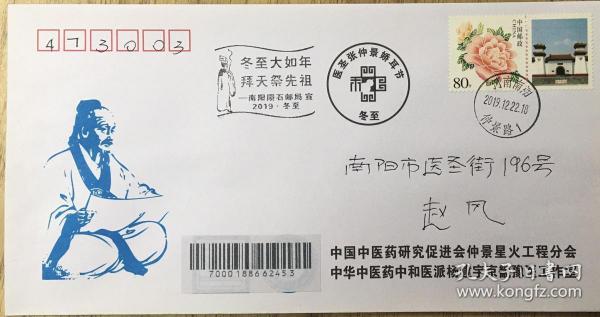 473003
冬至大如年
拜天祭先祖
—南阳陨石邮局宣
2019·冬至
医圣张仲景娇耳节
冬至
中国邮政
CHINA
80分
河南南阳
2019.12.22.10
伊景路1
南阳市医圣街196号
赵风
7000188662453
中国中医药研究促进会仲景星火工程分会
中华中医药中和医派
工作室
孔夫子旧书网
www.kongfz.com